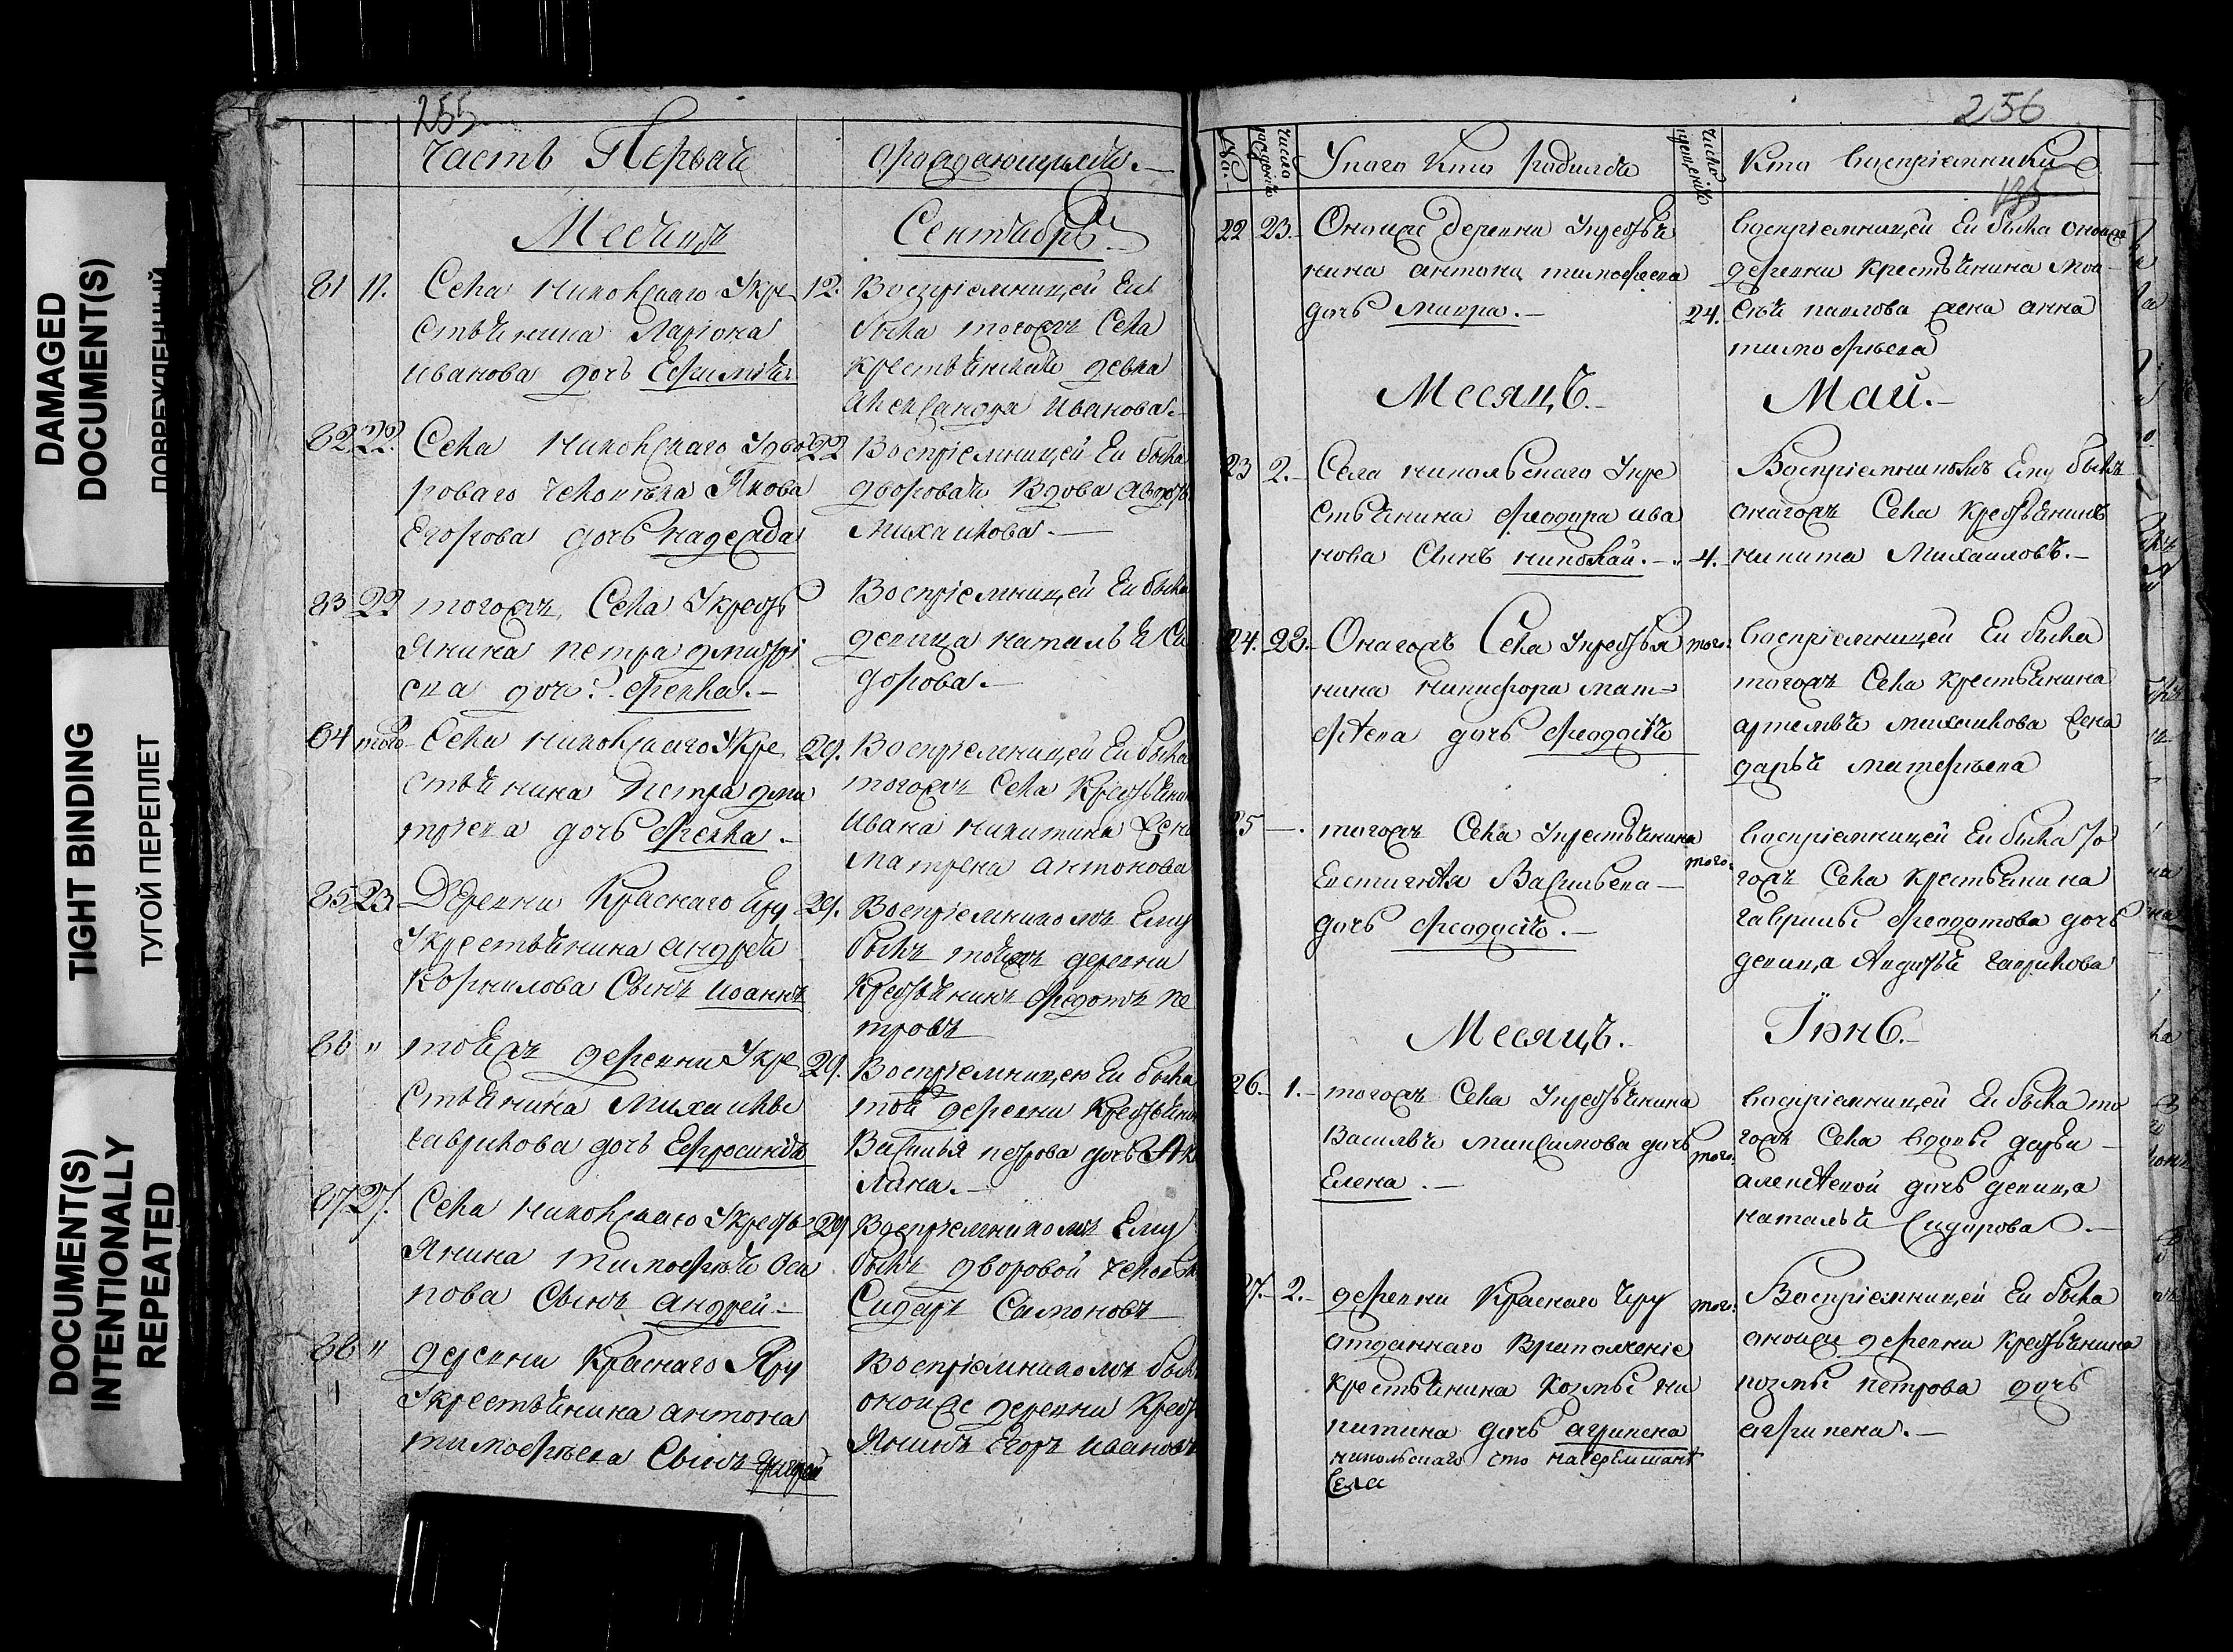 DAMAGED
DOCUMENT(S)
TIGHT BINDING
ТУГОЙ ПЕРЕПЛЕТ
DOCUMENT(S)
INTENTIONALLY
REPEATED
255
Часть Первая
ораждающихся.
Месяцъ
Сентябрь
81 11. Села Никольскаго Укре
стьянина Лариона
Иванова дочь Ефимия
12. Восприемницей Ей
была тогожъ Села
крестьянская девка
Александра Иванова.
82 22. Села Никольскаго Удво
роваго человека Якова
Егорова дочь надежда
22 Восприемницей Ей была
дворовая вдова
Михайлова.
83 22 тогожъ Села Укресть
янина петра дмитрі
ева дочь фекла.
Восприемницей Ей была
девица наталья Си
дорова.
84 того Села Никольскаго Укре
стьянина Петра дми
триева дочь фекла.
29. Восприемницей Ей была
тогожъ Села Крестьянина
Ивана никитина жена
Матрена антонова
85 23. Деревни Краснаго Яру
Укрестьянина андрея
Корнилова Сынъ иоаннъ
29. Восприемникомъ Ему
былъ тояжъ деревни
Крестьянинъ федотъ пе
тровъ
86 " тояжъ деревни Укре
стьянина Михайлы
гаврилова дочь Ефросинья
29. Восприемницею Ей была
той деревни Крестьянина
Василья петрова дочь Аку
лина.
87 27. Села Никольскаго Укресть
янина тимофея Оси
пова Сынъ андрей.
29 Восприемникомъ Ему
былъ дворовой человекъ
Сидаръ Самоновъ
88 " деревни Краснаго Яру
Укрестьянина антона
тимофеева Сынъ
Восприемникомъ былъ
оной же деревни Кресть
янинъ Егоръ Ивановъ
256
№.
число рождения
Унаго Кто родился
число крещения
Кто восприемники
22 23. Оной же деревни Укрестья
нина антона тимофеева
дочь мавра.
24.
восприемницей Ей была оной же
деревни крестьянина мои
сея павлова жена анна
тимофеева
Месяцъ.
Май.
23 2. Села никольскаго Укре
стьянина феодора ива
нова Сынъ николай.
4.
Восприемникомъ Ему былъ
онагожъ Села крестьянинъ
никита Михаиловъ.
24. 23. Онагожъ Села Укрестья
нина никифора мат
фѣева дочь феодосья
того.
восприемницей Ей была
тогожъ Села крестьянина
артемья михаилова жена
дарья матфеева
25 тогожъ Села Укрестьянина
Евстигнея Васильева
дочь феодосья.
того.
восприемницей Ей была то
гожъ Села крестьянина
гаврилы федотова дочь
девица Авдотья гаврилова
Месяцъ.
Іюнь.
26. 1. тогожъ Села Укрестьянина
Василья максимова дочь
Елена.
того.
восприемницей Ей была то
гожъ Села вдовы дарьи
алексѣевой дочь девица
наталья Сидорова.
27. 2. деревни Краснаго Яру
отданнаго Вриположеніе
крестьянина козмы ни
китина дочь агрипена
никольскаго что начеремшанѣ
Села
того.
Восприемницей Ей была
оной же деревни крестьянина
козмы петрова дочь
агрипена.